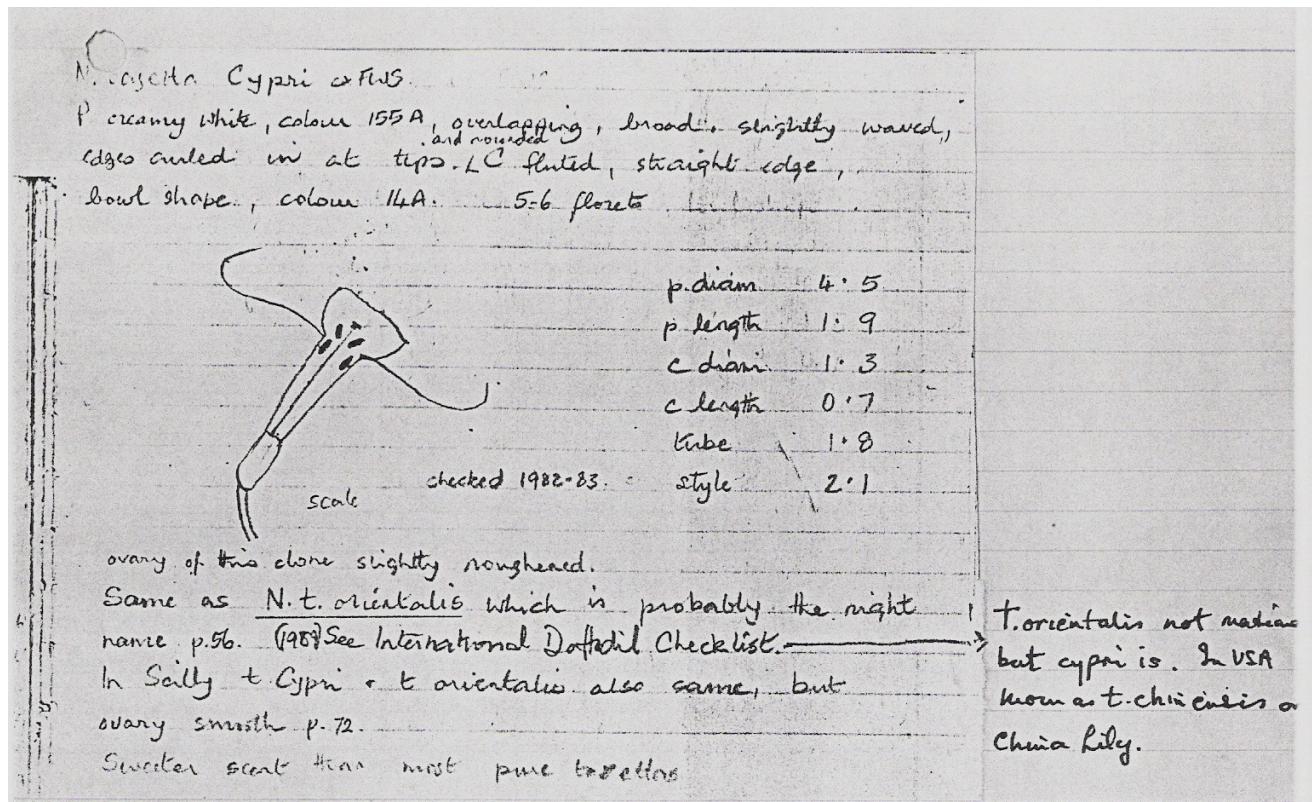 N. Cypri ex FWS.
P creamy white, colour 155A, overlapping, broad, slightly waved,
and rounded
edges curled in at tips. LC fluted, straight edge,
bowl shape, colour 14A. 5-6 florets
p. diam 4.5
p length 1.9
c diam. 1.3
c length 0.7
tube 1.8
checked 1982-83. style 2.1
scale
ovary of this clone slightly roughened.
Same as N. t. orientalis which is probably the right
name p.56. (1989) See International Daffodil Checklist.
In Scilly t Cypri & t orientalis also same, but
ovary smooth p. 72.
Sweeter scent than most pure tazettas
T. orientalis not
but cypri is. In USA
known as t. chinensis or
China Lily.